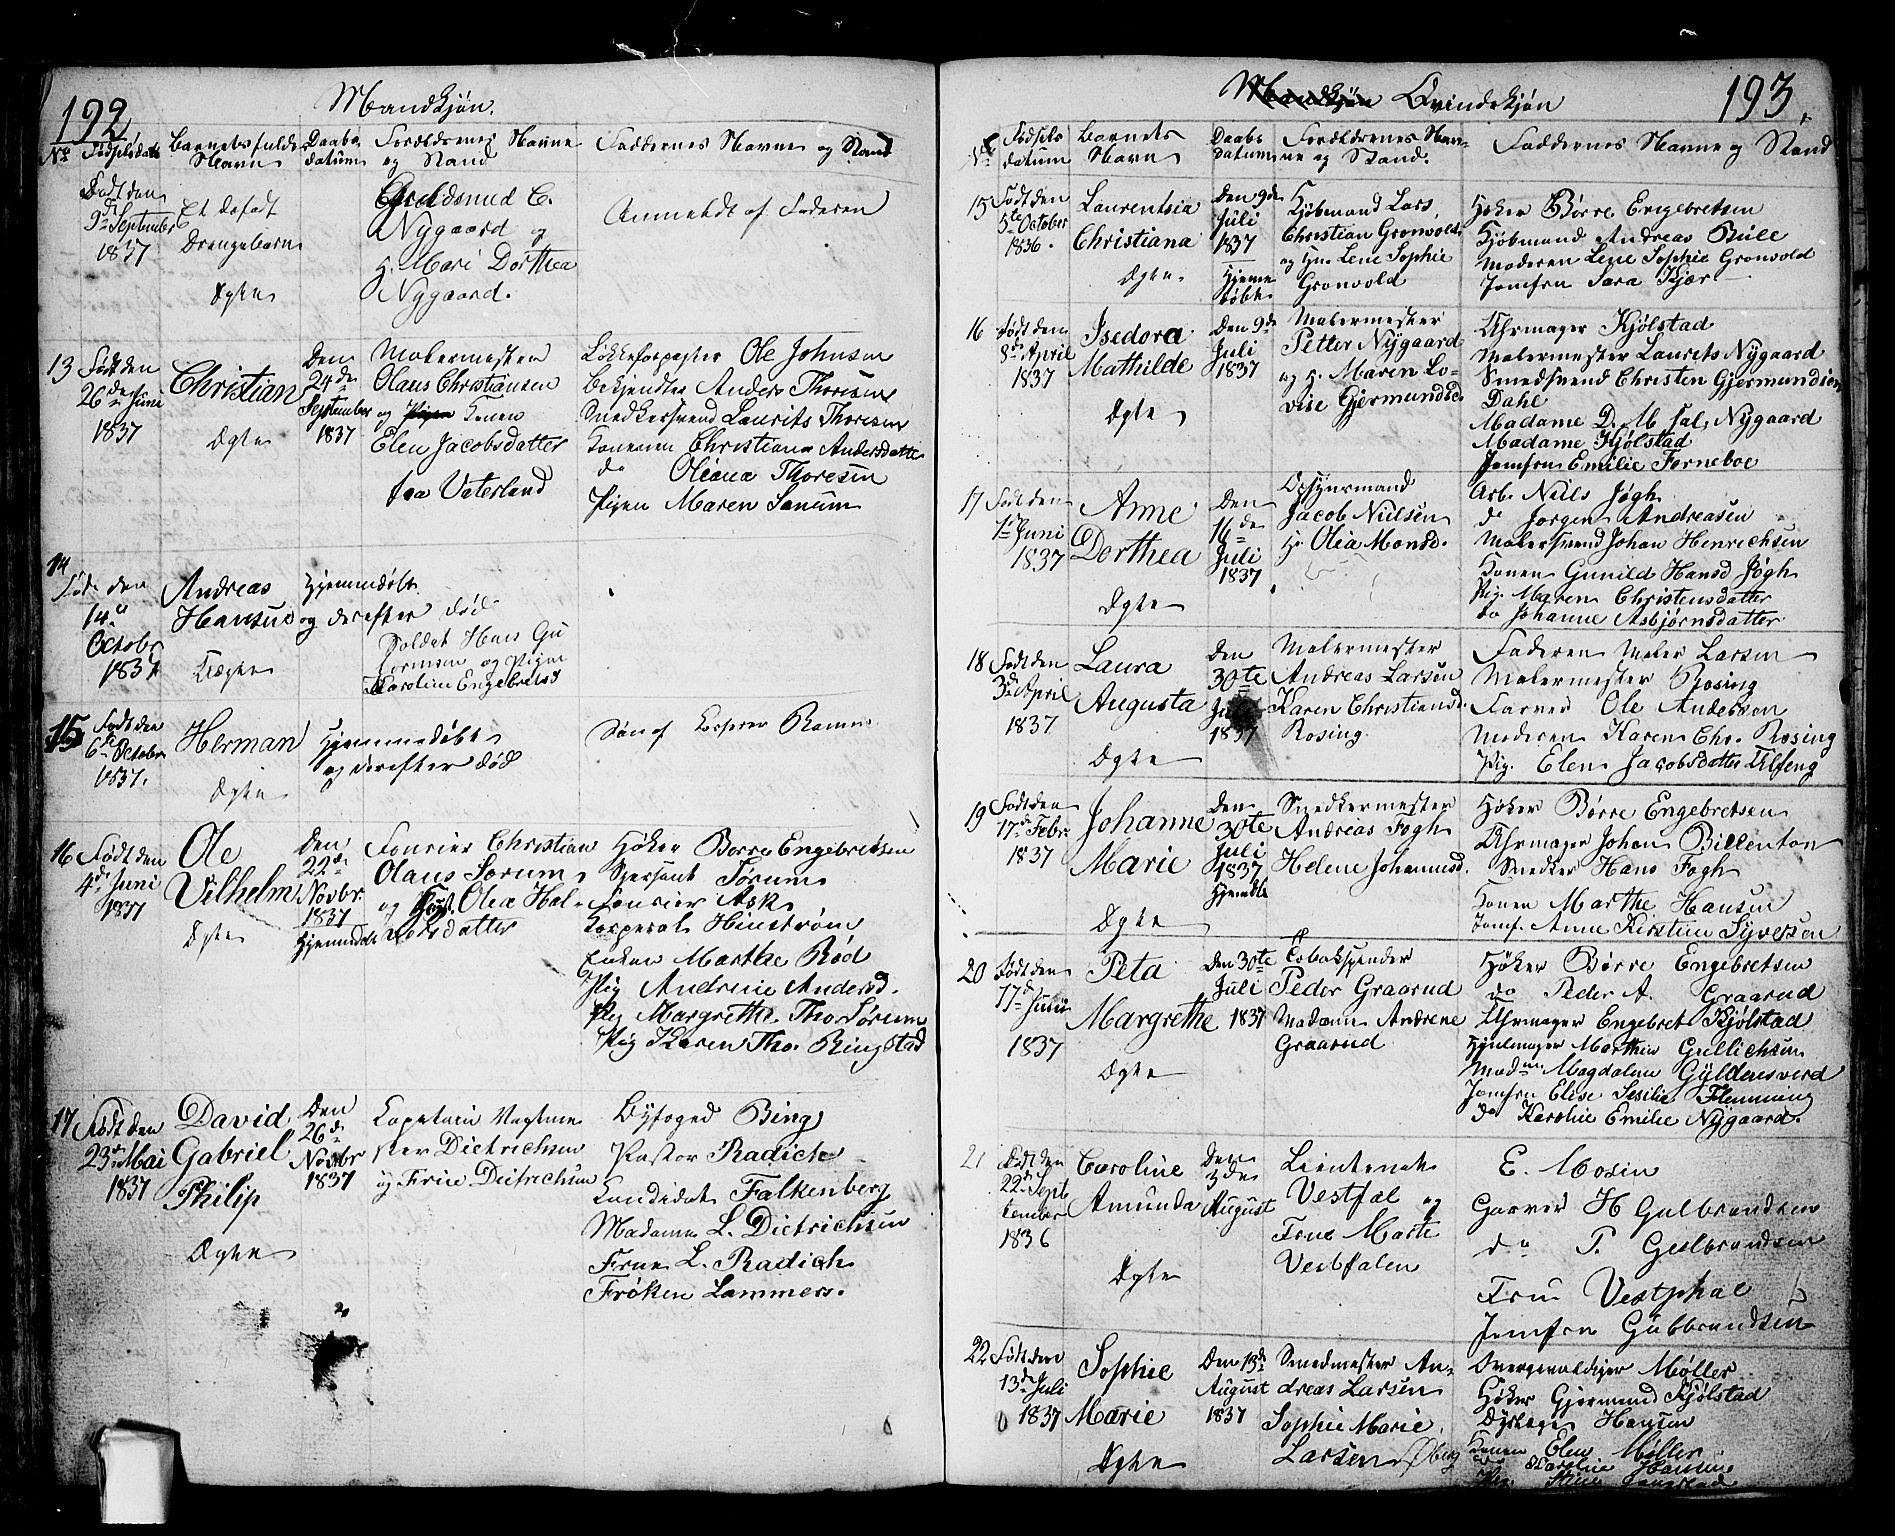 192
Mandkjøn.
No Fødselsdato Barnets fulde Navn Daabsdatum Forældrenes Navne og Stand Faddernes Navne og Stand
Født den
9de September
1837
Et dødfødt
Drengebarn
Ægte
Guldsmed C.
Nygaard og
H. Mari Dorthea
Nygaard.
Anmeldt af Faderen
13 Født den
26de Juni
1837
Christian
Ægte
Den
24de
September
1837
Malermester
Olaus Christiansen
og Konen
Elen Jacobsdatter
fra Vaterland
Løkkeforpagter Ole Johnsen
Bekjendter Anders Thoresen
Snedkersvend Laurits Thoresen
Konerne Christiana Andersdatter
do Oleana Thoresen
Pigen Maren Sanum
14
Født den
14de
October
1837
Andreas
Hansen
Uægte
Hjemmedøbt
og derefter død
Soldat Hans Gu
tormsen og Pigen
Karoline Engebretsd
15 Født den
6te October
1837.
Herman
Ægte
Hjemmedøbt
og derefter død
Søn af
16 Født den
4de Juni
1837
Ole
Vilhelm
Ægte
Den
22de
Novbr
1837
Hjemmedøbt
Fourier Christian
Olaus Sørum
og Olea Hal-
vorsdatter
Høker Børre Engebretsen
Sersant Sørum
Fourier Ask
Korporal Hinstrøm
Enken Marthe Rød
Pig Andrine Andersd.
Pig Margrethe Tho. Sørum
Pig Karen Tho. Ringstad
17 Født den
23de Mai
1837
David
Gabriel
Philip
Ægte
Den
26de
Novbr
1837
Kaptain Vagtme
ster Dietrichsen
og Frue Dietrichsen
Byfoged Bing
Pastor Radich
Candidat Falkenberg
Madame L. Dietrichsen
Frue L. Radich
Frøken Lammers.
193.
Mandkjøn Qvindekjøn
No Fødsels datum Barnets Navn Daabs datum Forældrenes Navne og Stand. Faddernes Navne og Stand
15 Født den
5te October
1836.
Laurentsia
Christiana
Ægte.
Den 9de
Juli
1837
Hjemme
døbt
Kjøbmand Lars
Christian Gronvold
og Hu. Lene Sophie
Gronvold
Høker Børre Engebretsen
Kjøbmand Andreas
Moderen Lene Sophie Gronvold
Jomfru Sara Kjær
16 Født den
8de April
1837
Isedora
Mathilde
Ægte
Den 9de
Juli
1837
Malermester
Petter Nygaard
og H. Maren Lo-
vise Gjermundsen
Uhrmager Kjølstad
Malermester Laurits Nygaard
Smedsvend Christen Gjermundsen
Dahl
Madame D. M. sal. Nygaard
Madame Kjølstad
Jomfru Emilie Forneboe
17 Født den
1te Juni
1837
Anne
Dorthea
Ægte
Den
16de
Juli
1837
Opsynsmand
Jacob Nielsen
H. Olea Monsd.
Arb. Niels Jøgh
do Jørgen Andreasen
Malersvend Johan Henrichsen
Konen Gunild Hansd Jøgh
Pig. Maren Christensdatter
do Johanne Asbjørnsdatter
18 Født den
3de April
1837
Laura
Augusta
Ægte
Den
30te
Juli
1837
Malermester
Andreas Larsen
Karen Christiansd.
Rosing
Faderen Maler Larsen
Malermester Rosing
Farver Ole Andersen
Moderen Karen Chr. Rosing
Pig. Elen Jacobsdatter
19 Født den
17de Febr.
1837
Johanne
Marie
Ægte
Den
30te
Juli
1837
Hjemdbt
Snedkermester
Andreas Fogh
Helene Johannesd.
Høker Børre Engebretsen
Uhrmager Johan Billenton
Snedker Hans Fogh
Konen Marthe Hansen
Jomf. Anne Kirstine Syversen
20 Født den
17de Juni
1837
Peta
Margrethe
Ægte
Den 30te
Juli
1837
Tobakspinder
Peder Graarud
Madame Andrene
Graarud
Høker Børre Engebretsen
do Peder A. Graarud
Uhrmager Engebret Kjølstad
Hjulmager Marthin Gullichsen
Madm. Magdalene Gyldensverd
Jomfru Elise Sesilie Flemming
do Karoline Emilie Nygaard.
21 Født den
22de Sept
tember
1836
Caroline
Amunda
Ægte
Den
3de
August
Lieutenat
Vestfal og
Frue Marte
Vestfalen
E. Mosin
Garver H Gulbrandsen
do P. Gulbrandsen
Frue Vestphal
Jomfru Gubbrandsen
22 Født den
13de Juli
1837
Sophie
Marie
Ægte
Den 13de
August
1837
Smedmester An-
dreas Larsen
Sophie Marie
Larsen Øberg
Overgevaldiger Møller
Høker Gjermund Kjølstad
Hansen
Konen Elen Møller
do Karoline Hansen